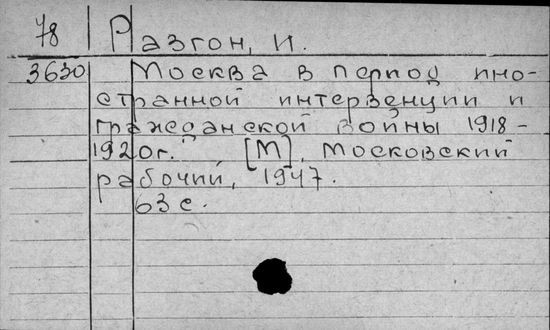 78 Разгон, И.
3630 Москва в период ино-
странной интервенции и
гражданской войны 1918-
1920г. [М], Московский
рабочий, 1947.
63 с.